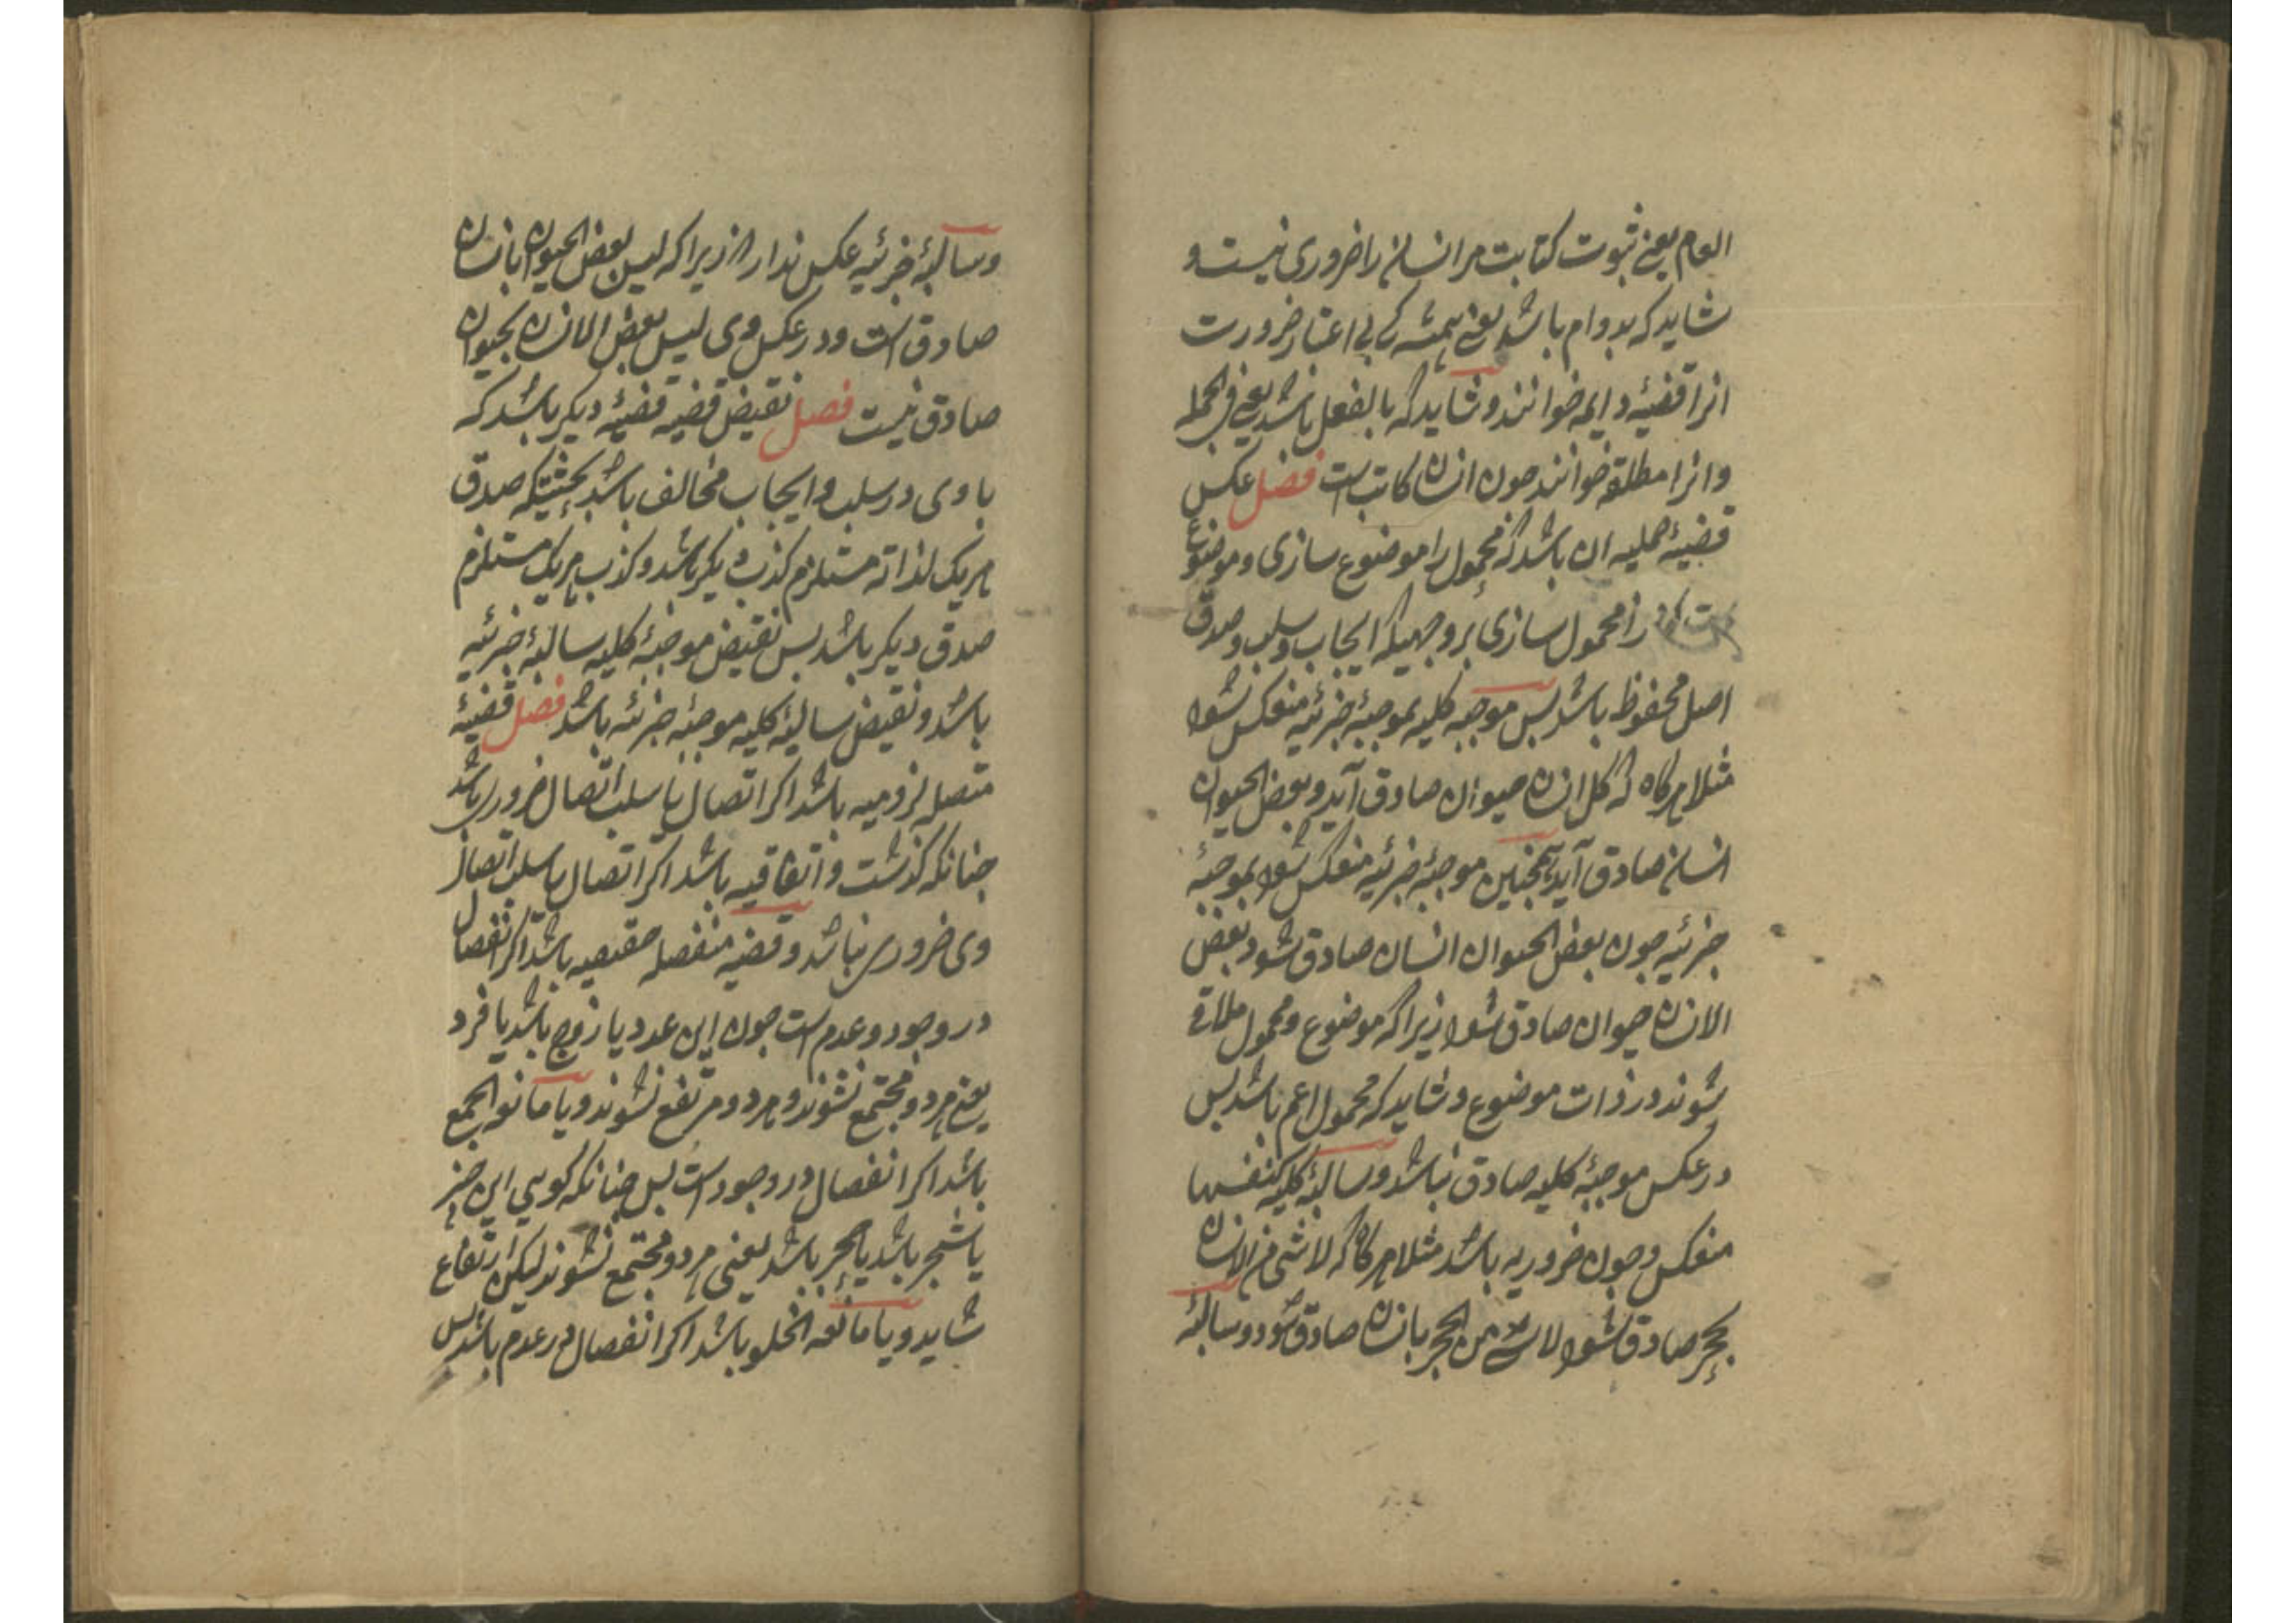 العام یعنی ثبوت کتابت مر انسان را ضروری نیست و
شاید که بدوام باشد یعنی همیشه کی بی اعتبار ضرورت
انرا قضیهٔ دایمه خوانند و شاید که بالفعل باشد یعنی فی الجمله
و انرا مطلقه خوانند جون انسان کاتب است فصل عکس
قضیهٔ حملیه ان باشد که محمول را موضوع سازی و موضوع
را محمول سازی بر وجهیکه ایجاب و سلب و صدق
اصل محفوظ باشد بس موجبه کلیه بموجبهٔ جزئیه منعکس شود
مثلا هرگاه که کل انسان حیوان صادق آید و بعض الحیوان
انسان صادق آید همجنین موجبهٔ جزئیه منعکس شود بموجبهٔ
جزئیه جون بعض الحیوان انسان صادق شود بعض
الانسان حیوان صادق شود زیرا که موضوع و محمول ملاقی
شوند در ذات موضوع و شاید که محمول اعم باشد بس
در عکس موجبهٔ کلیه صادق نباشد و سالبهٔ کلیه کنفسها
منعکس و جون ضروریه باشد مثلا هرگاه که لا شی من الانسان
بحجر صادق شود لا شی من الحجر بانسان صادق شود و سالبهٔ
و سالبهٔ جزئیه عکس ندارد زیرا که لیس بعض الحیوان بانسان
صادق است و در عکس وی لیس بعض الانسان بحیوان
صادق نیست فصل نقیض قضیه قضیهٔ دیکر باشد که
با وی در سلب و ایجاب مخالف باشد بحیثیتکه صدق
هر یک لذاته مستلزم کذب دیکر باشد و کذب هر یک مستلزم
صدق دیکر باشد بس نقیض موجبهٔ کلیه سالبهٔ جزئیه
باشد و نقیض سالبهٔ کلیه موجبهٔ جزئیه باشد فصل قضیهٔ
متصله لزومیه باشد اکر اتصال یا سلب اتصال ضروری باشد
جنانکه کذشت و اتفاقیه باشد اکر اتصال یا سلب اتصال
وی ضروری نباشد و قضیه منفصله حقیقیه باشد اکر انفصال
در وجود و عدم است جون این عدد یا زوج باشد یا فرد
یعنی هر دو مجتمع نشوند و هر دو مرتفع نشوند و یا مانعه الجمع
باشد اکر انفصال در وجود است بس جنانکه کویی این جیز
یا شجر باشد یا حجر باشد یعنی هر دو مجتمع نشوند لیکن ارتفاع
شاید و یا مانعه الخلو باشد اکر انفصال در عدم باشد بس